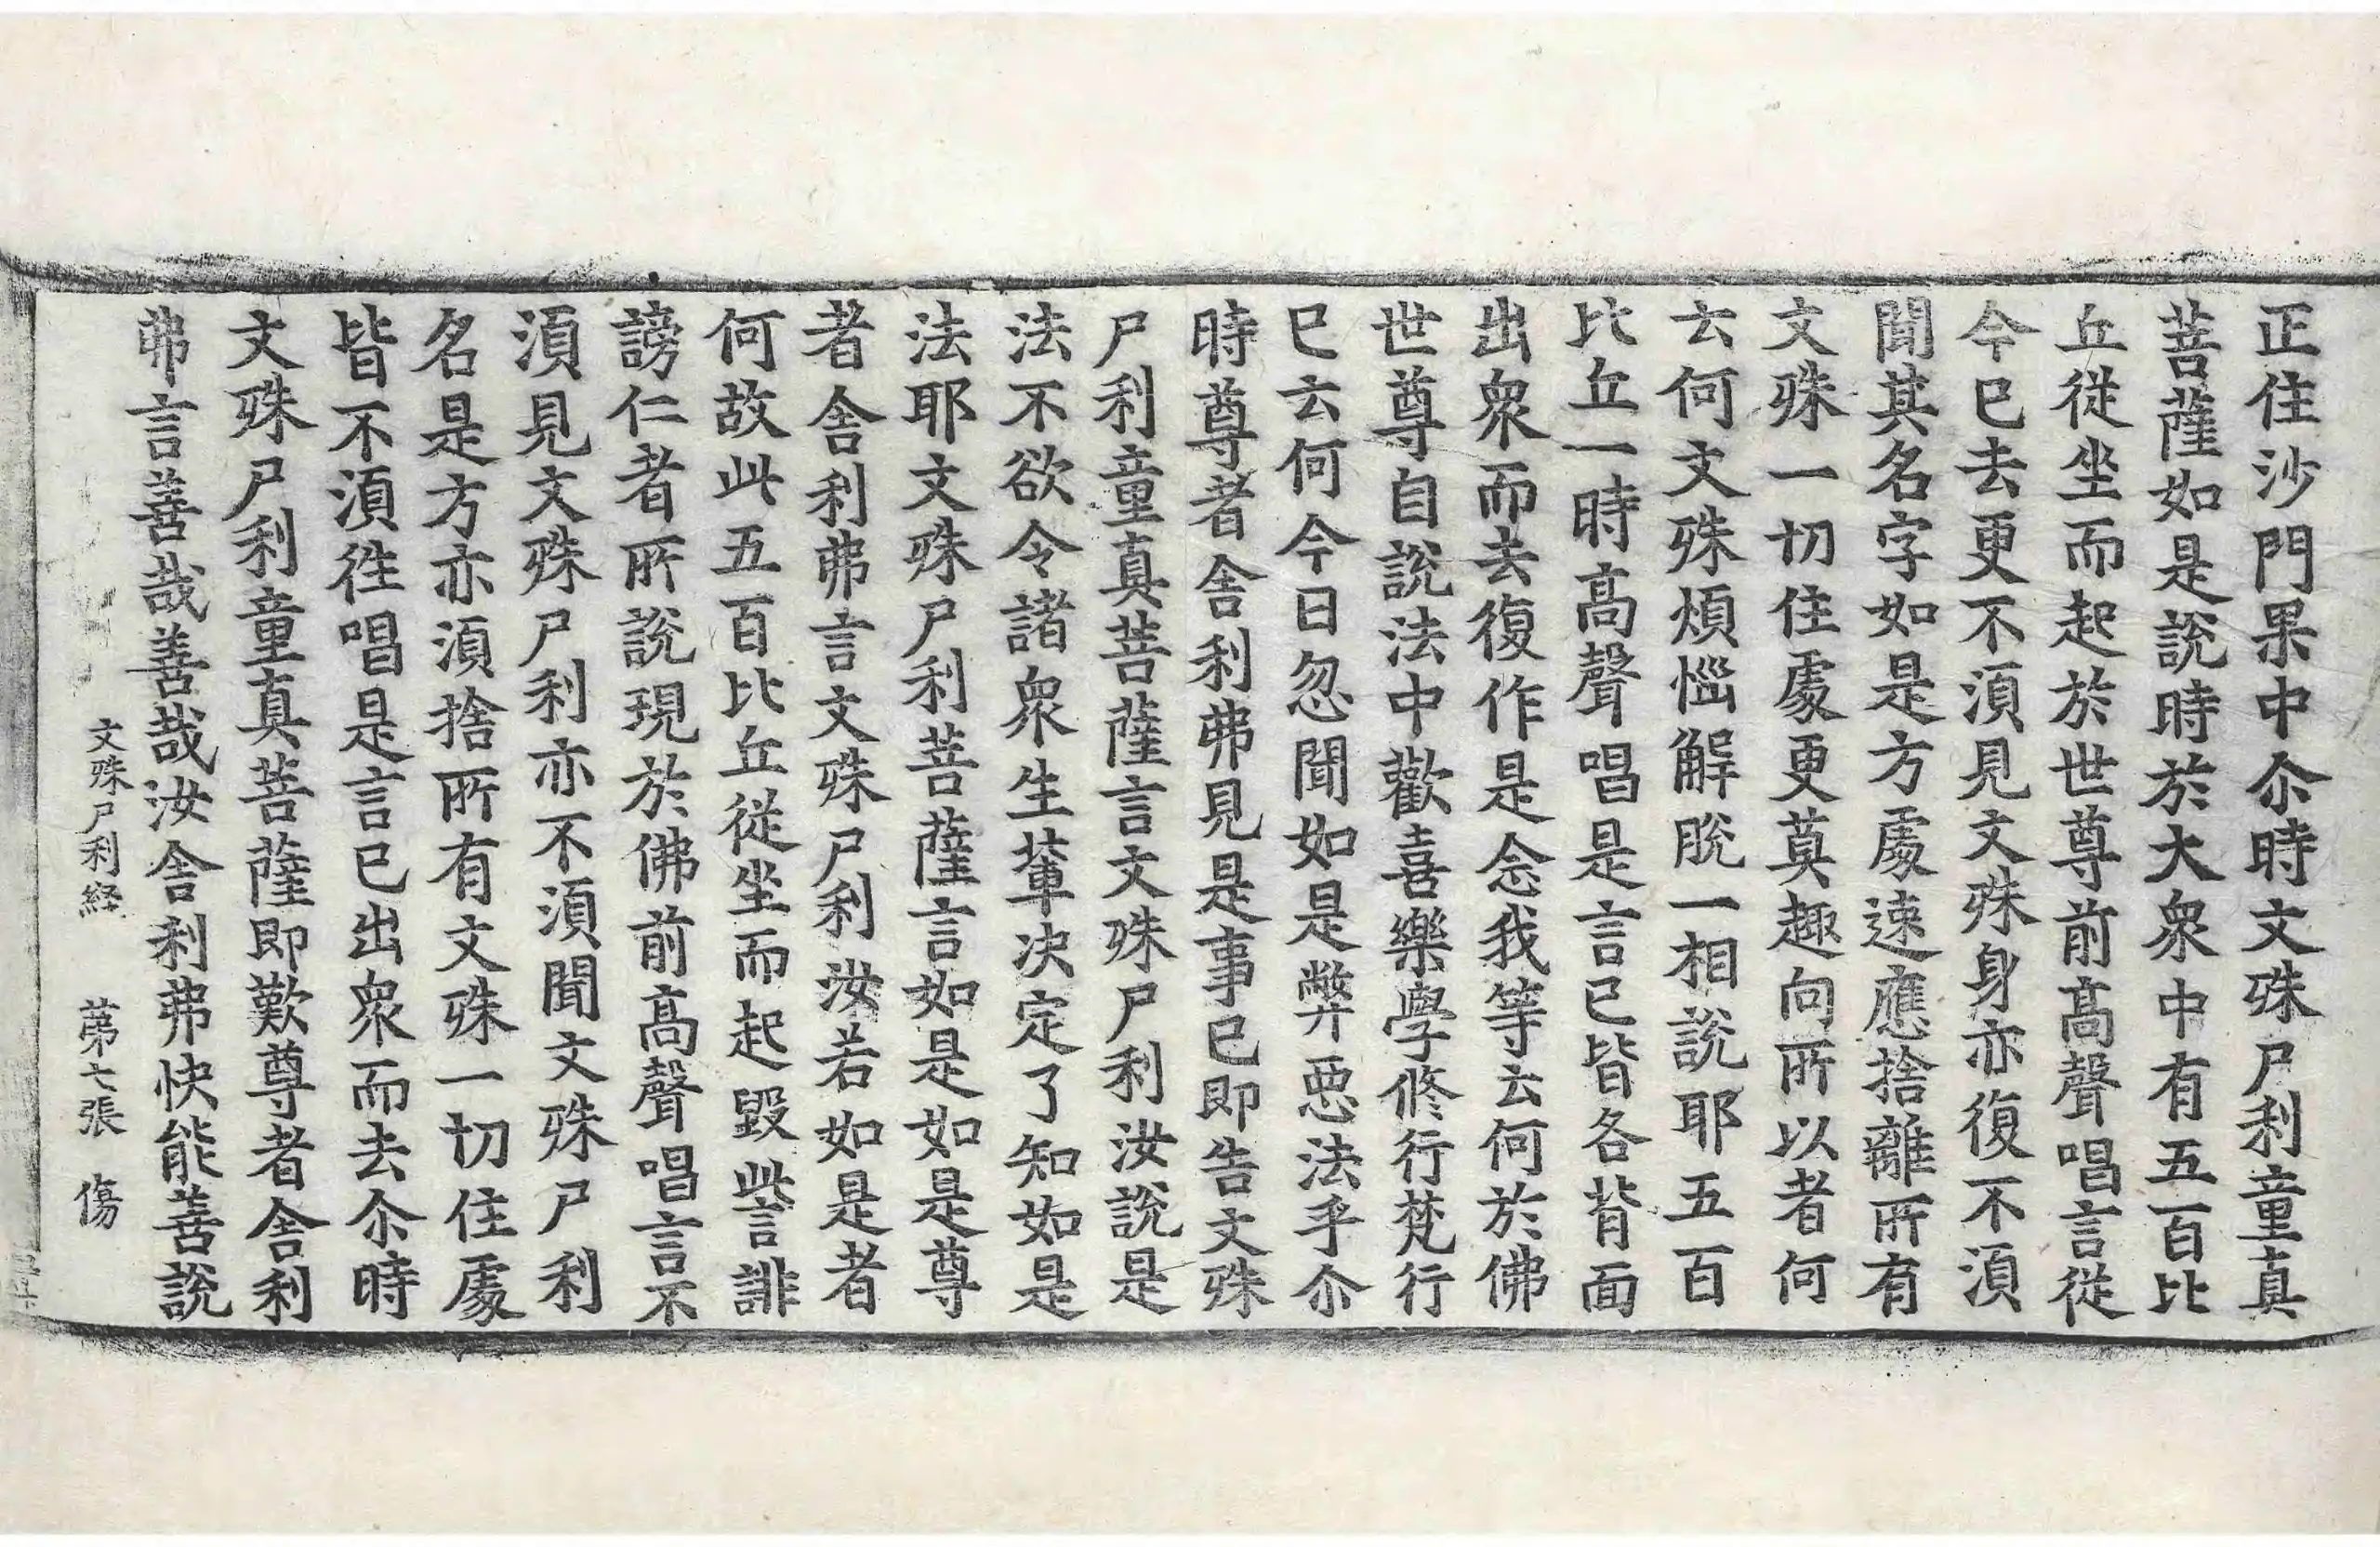 正住沙門果中尒時文殊尸利童真
菩薩如是說時於大衆中有五百比
丘從坐而起於世尊前高聲唱言從
今已去更不須見文殊身亦復不須
聞其名字如是方處速應捨離所有
文殊一切住處更莫趣向所以者何
云何文殊煩惱解脫一相說耶五百
比丘一時高聲唱是言已皆各背面
出衆而去復作是念我等云何於佛
世尊自說法中歡喜樂學修行梵行
已云何今日忽聞如是弊惡法乎尒
時尊者舍利弗見是事已即告文殊
尸利童真菩薩言文殊尸利汝說是
法不欲令諸衆生軰决定了知如是
法耶文殊尸利菩薩言如是如是尊
者舍利弗言文殊尸利汝若如是者
何故此五百比丘從坐而起毀訾誹
謗仁者所說現於佛前高聲唱言不
須見文殊尸利亦不須聞文殊尸利
名是方亦須捨所有文殊一切住處
皆不須往唱是言已出衆而去尒時
文殊尸利童真菩薩即歎尊者舍利
弗言善哉善哉汝舍利弗快能善說
文殊尸利経 苐七張 傷